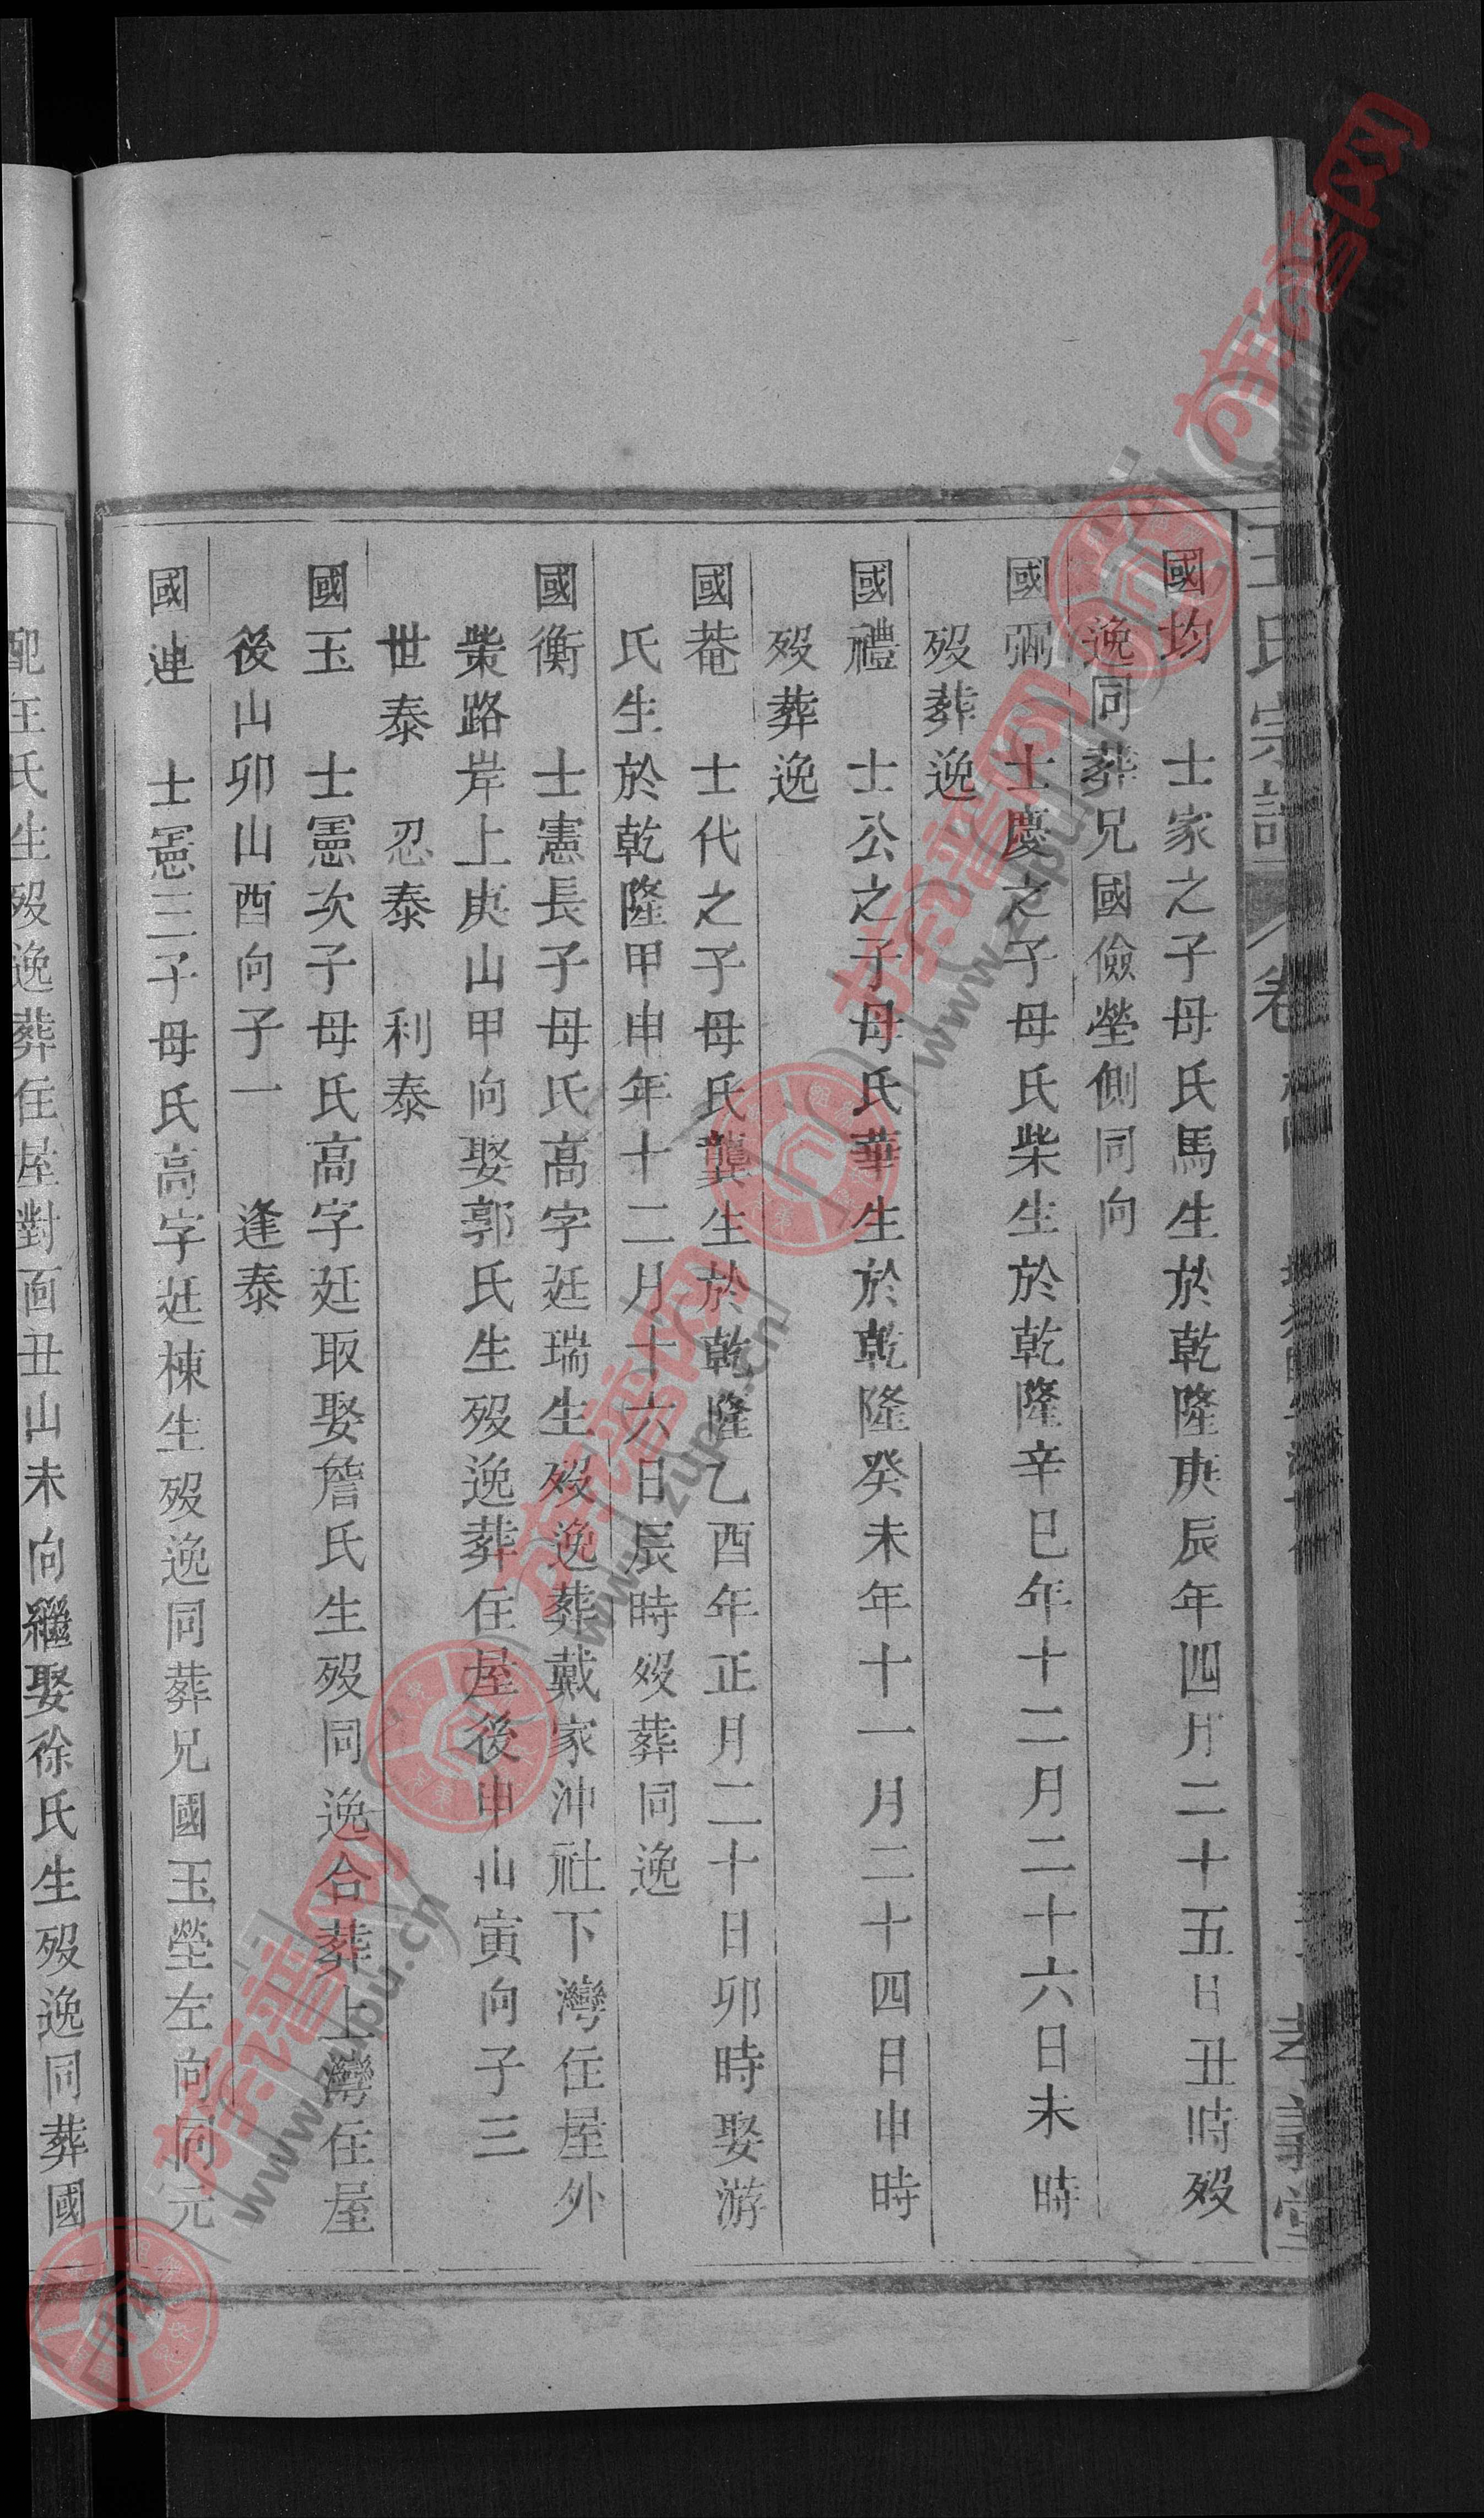 王氏宗譜 卷 孝義堂
國均 士家之子母氏馬生於乾隆庚辰年四月二十五日丑時歿
逸同葬兄國儉塋側同向
國弼 士慶之子母氏柴生於乾隆辛巳年十二月二十六日未時
歿葬逸
國禮 士公之子母氏華生於乾隆癸未年十一月二十四日申時
歿葬逸
國菴 士代之子母氏龔生於乾隆乙酉年正月二十日卯時娶游
氏生於乾隆甲申年十二月十六日辰時歿葬同逸
國衡 士憲長子母氏高字廷瑞生歿逸葬戴家沖社下灣住屋外
柴路岸上庚山甲向娶郭氏生歿逸葬住屋後申山寅向子三
世泰 忍泰 利泰
國玉 士憲次子母氏高字廷取娶詹氏生歿同逸合葬上灣住屋
後山卯山酉向子一 逢泰
國連 士憲三子母氏高字廷棟生歿逸同葬兄國玉塋左向同元
配王氏生歿逸葬住屋對面丑山未向繼娶徐氏生歿逸同葬國
族譜网
www.zupu.cn